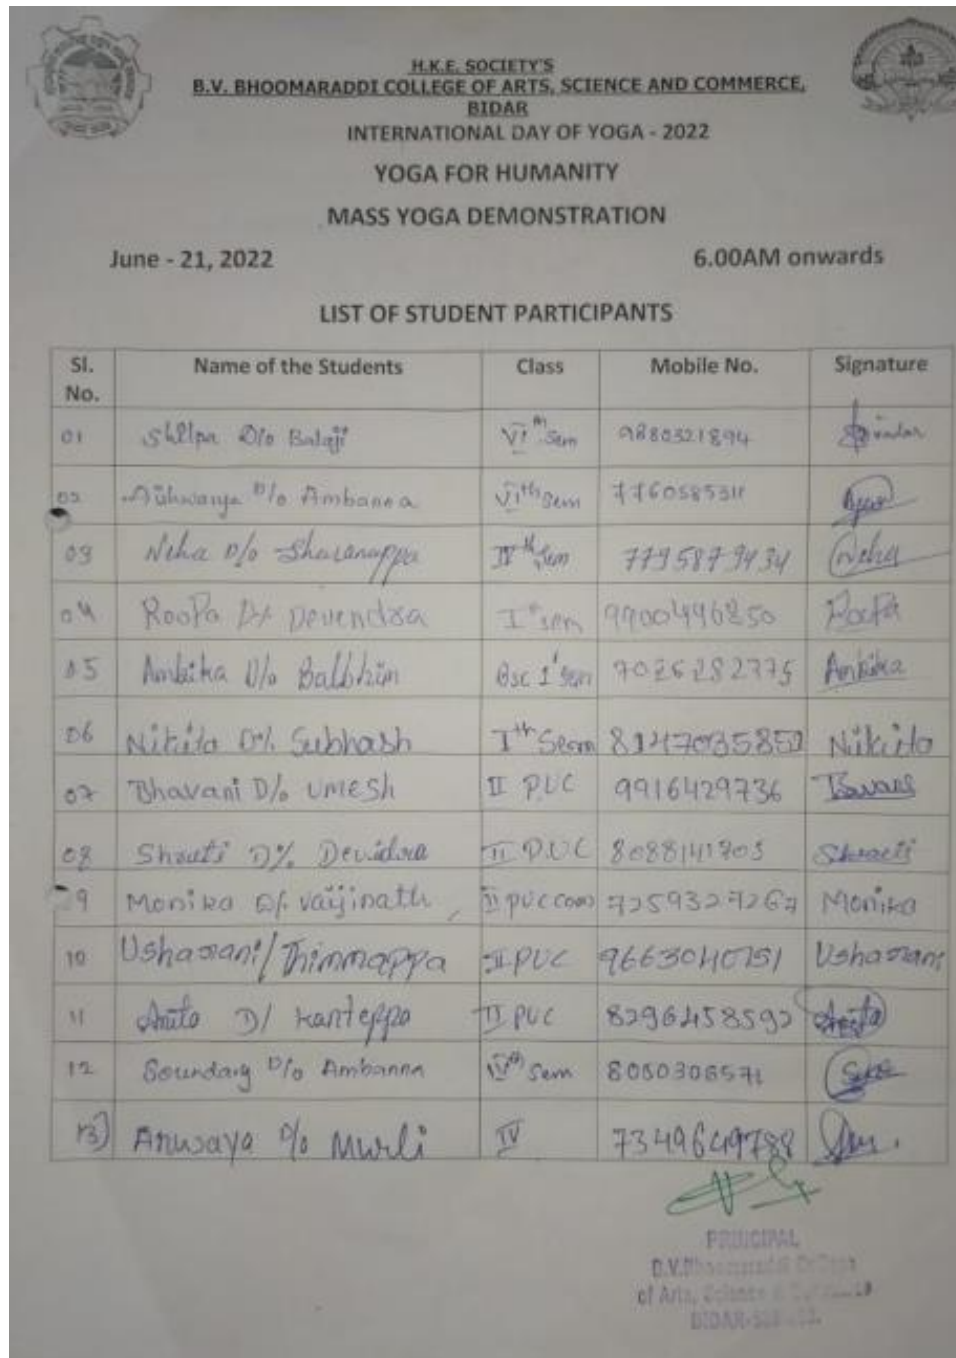 H.K.E. SOCIETY'S
B.V. BHOOMARADDI COLLEGE OF ARTS, SCIENCE AND COMMERCE,
BIDAR
INTERNATIONAL DAY OF YOGA - 2022
YOGA FOR HUMANITY
MASS YOGA DEMONSTRATION
June - 21, 2022 6.00AM onwards
LIST OF STUDENT PARTICIPANTS
Sl. No. Name of the Students Class Mobile No. Signature
01 Shilpa D/o Balaji VIth Sem 9880321894
02 Aishwarya D/o Ambanna VIth Sem 7760585311
03 Neha D/o Sharanappa IVth Sem 7795879434 Neha
04 Roopa D/ Devendra Ist sem 9900496850 Roopa
05 Ambika D/o Balbhim Bsc 1st Sem 7026282775 Ambika
06 Nikita D/. Subhash Ith Seem 8147035852 Nikita
07 Bhavani D/o Umesh II PUC 9916429736
08 Shruti D/. Devidra II P.U.C 8088141703 Shruti
09 Monika D/. Vaijinath II PUC com 7259327267 Monika
10 Usharani/Thimmappa II PUC 9663040751 Usharani
11 Anita D/ Kanteppa II PUC 8296458592 Anita
12 Soundary D/o Ambanna IVth Sem 8050306571
13) Anusaya D/o Murli IV 7349649788
PRINCIPAL
B.V.Bhoomaraddi College
of Arts, Science &
BIDAR